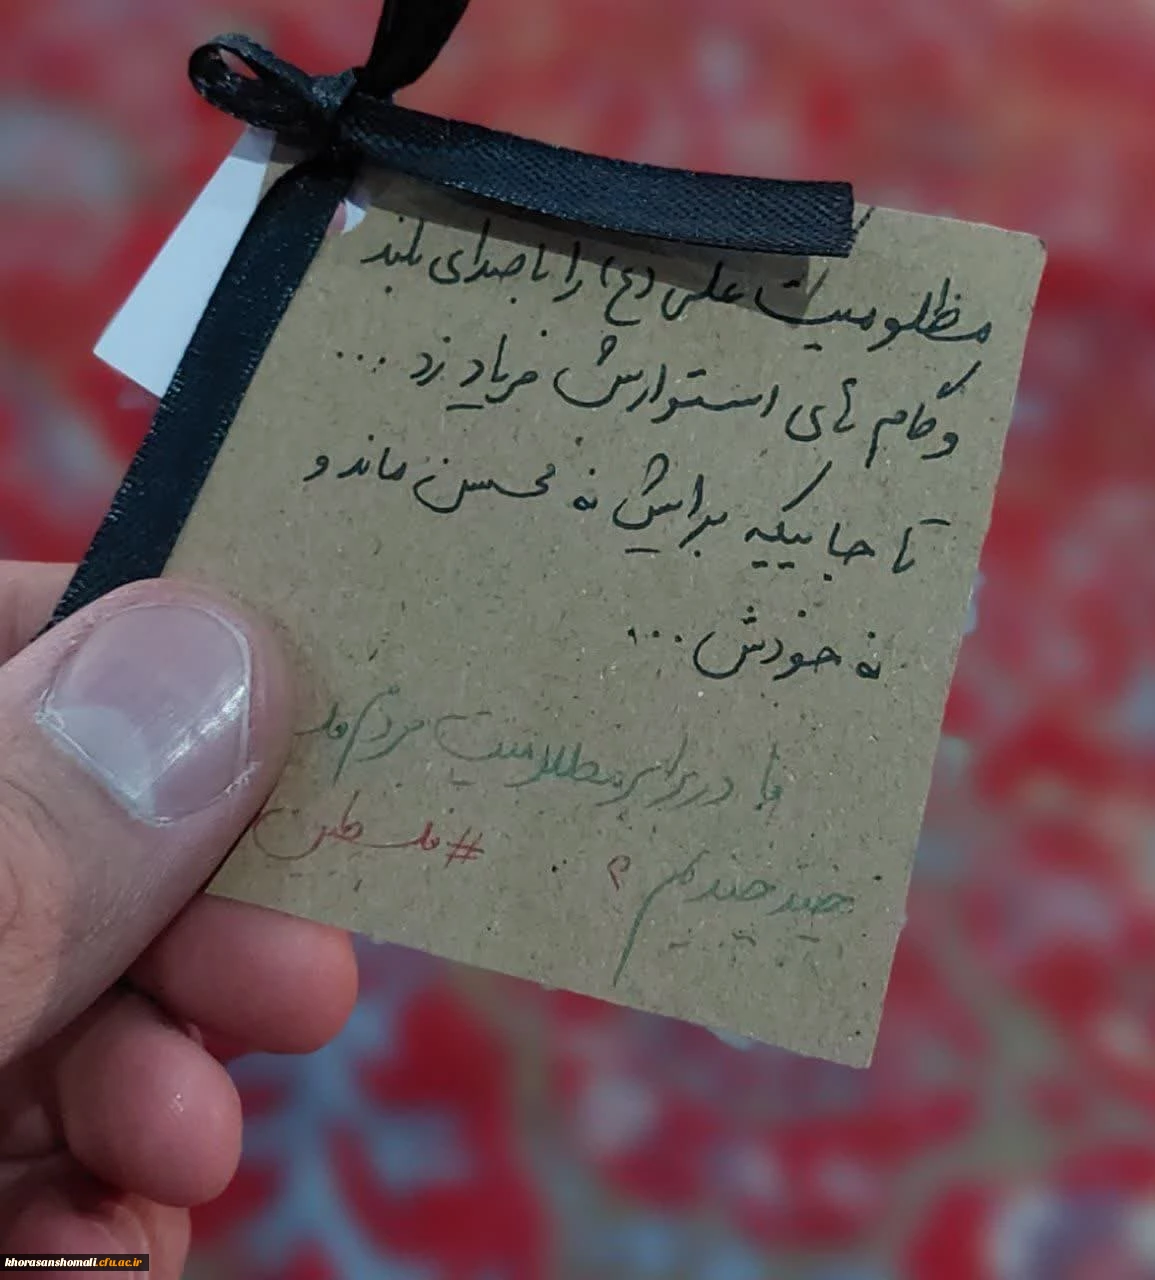 مظلومیت علی (ع) را با صدای بلند
و گام های استوارش فریاد زد ...
تا جاییکه برایش نه محسن ماند و
نه خودش ...
ما در برابر مظلومیت مردم
چند چندیم ؟ #فلسطین
khorasanshomali.cfu.ac.ir